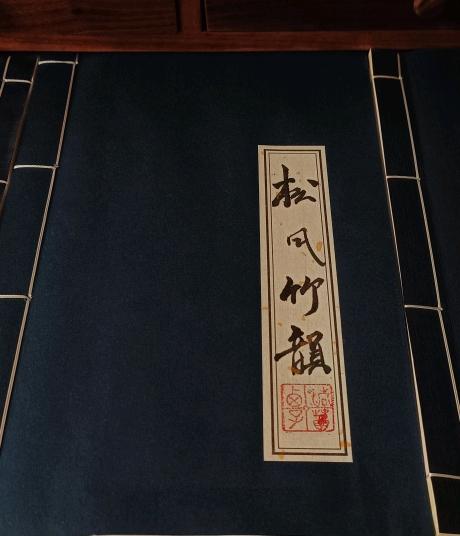 松风竹韻